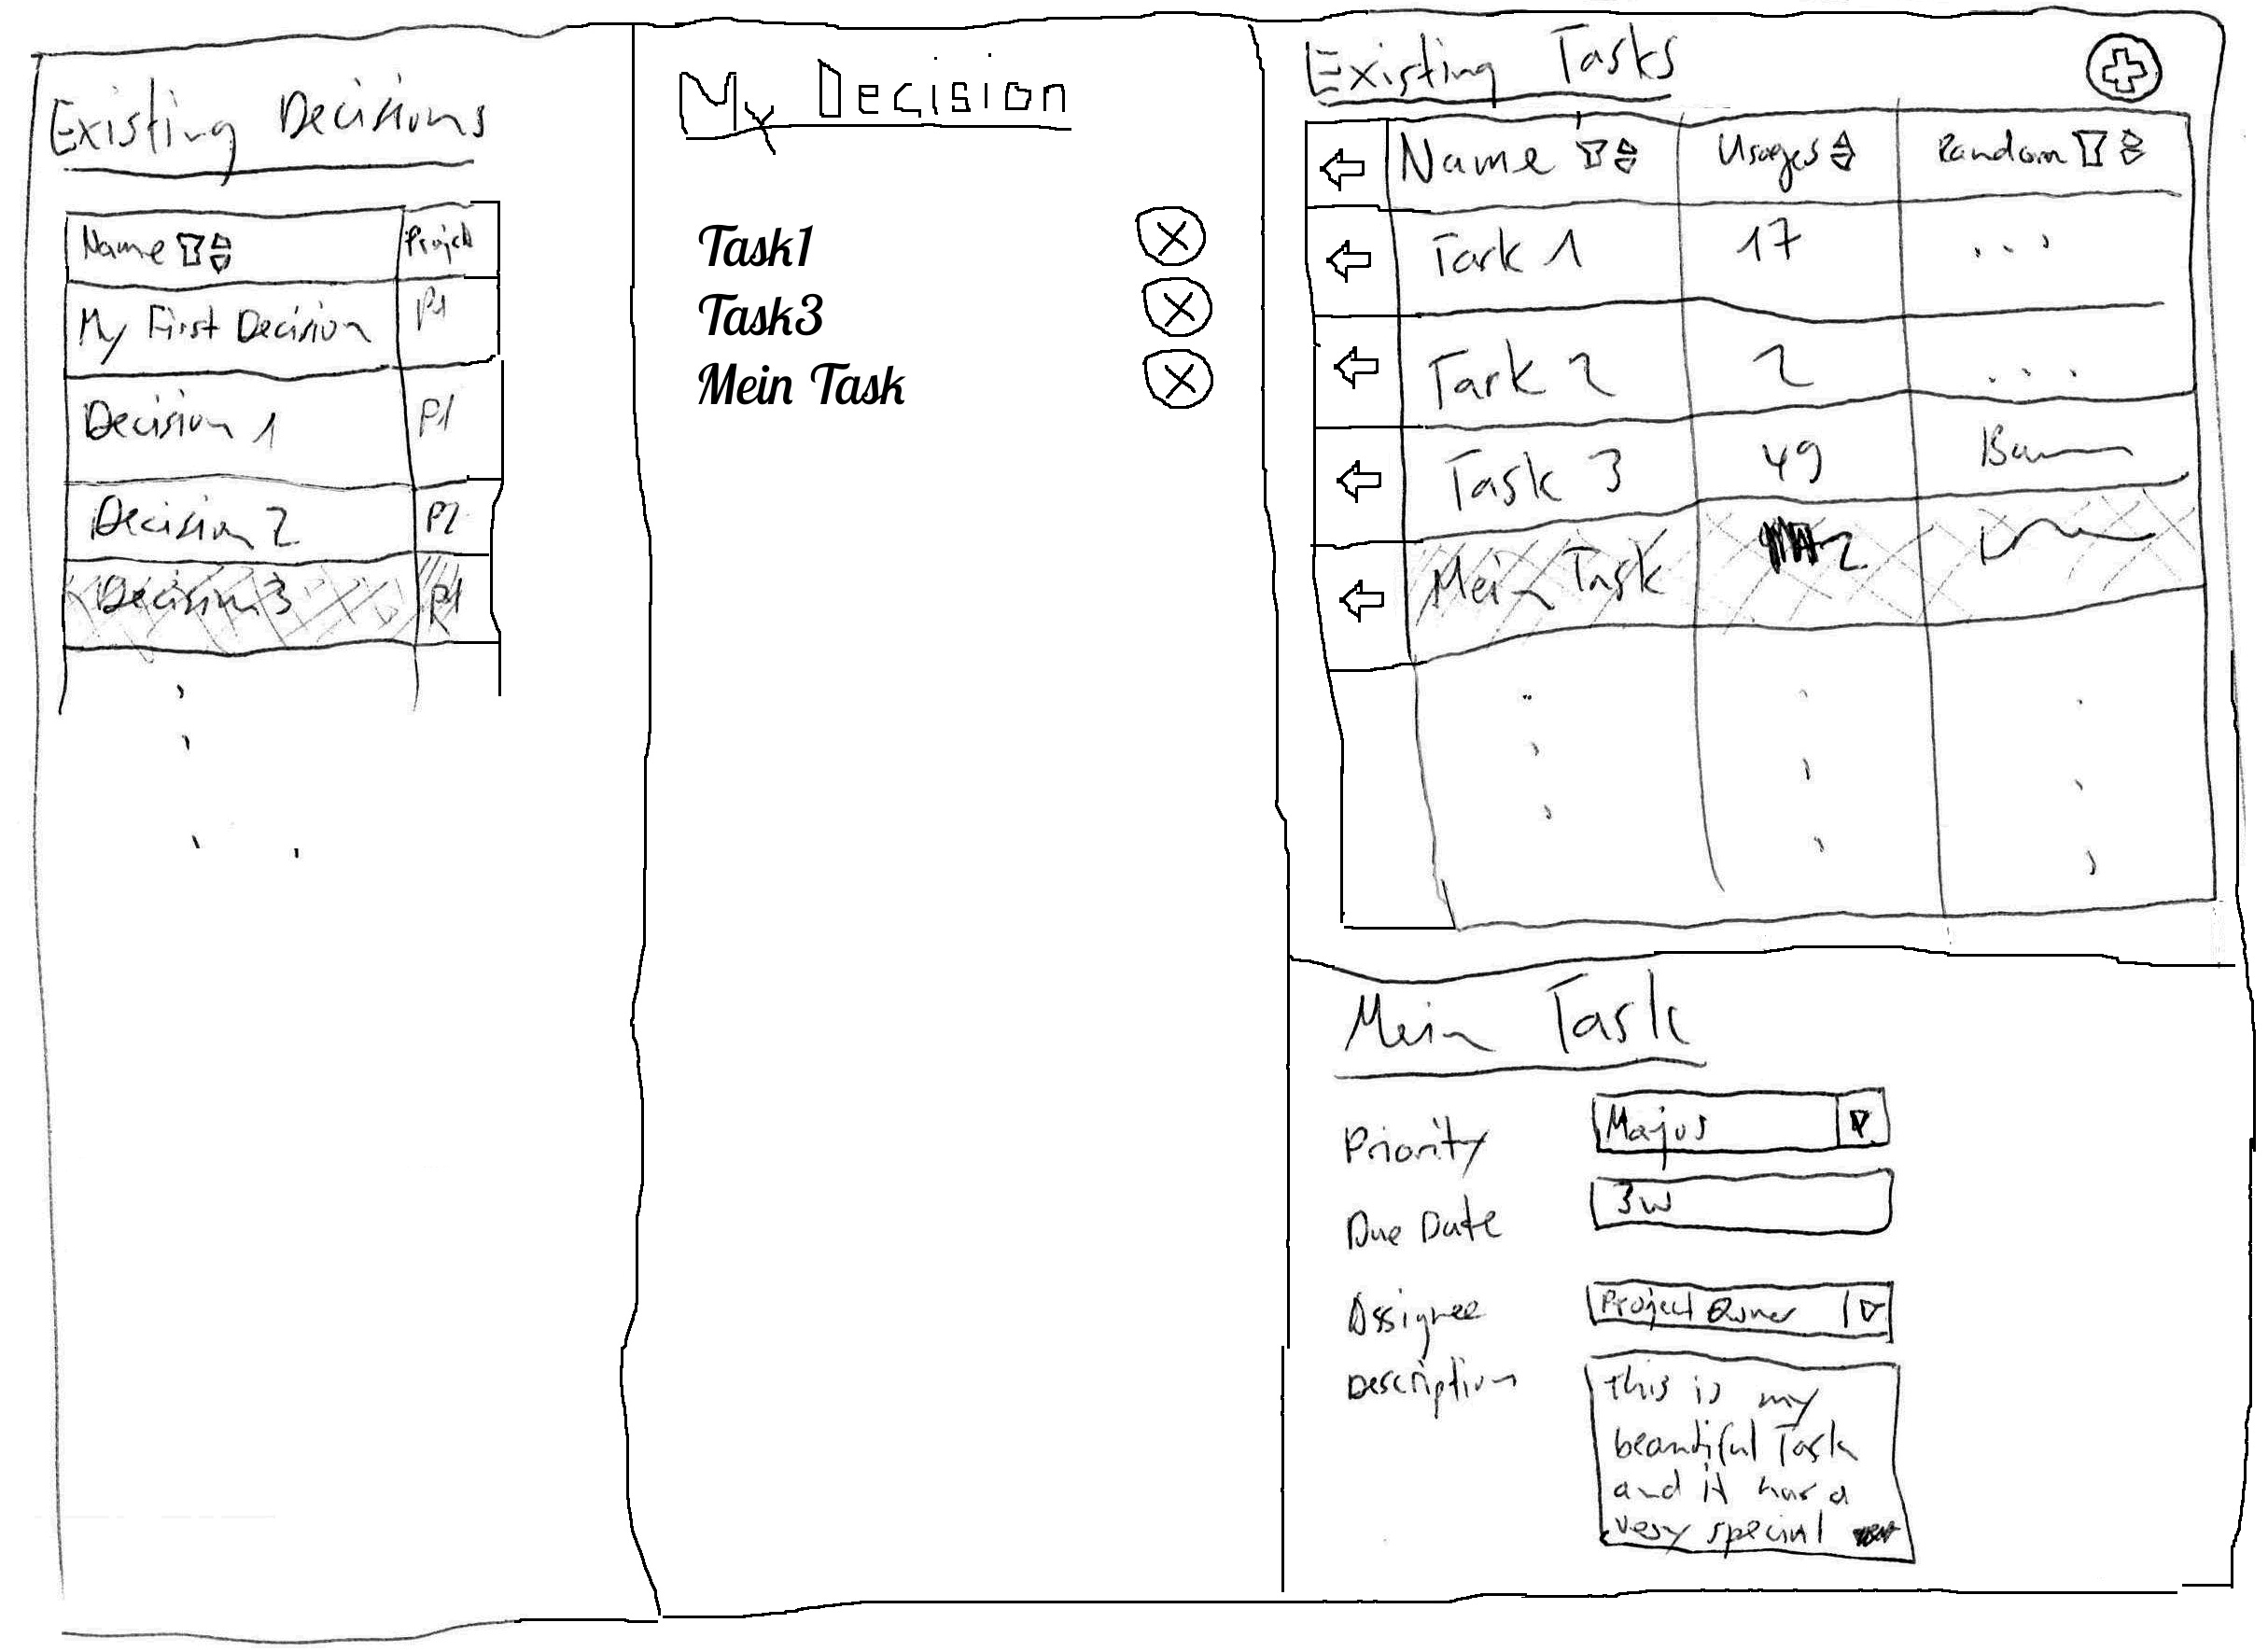 Existing Decisions
Name Project
My First Decision P1
Decision 1 P1
Decision 2 P2
Decision 3 P1
My Decision
Task1
Task3
Mein Task
Existing Tasks
Name Usages Random
Task 1 17 ...
Task 2 2 ...
Task 3 49
Mein Task 2
Mein Task
Priority Major
Due Date 3w
Assignee Project Owner
Description
This is my
beautiful Task
and it has a
very special